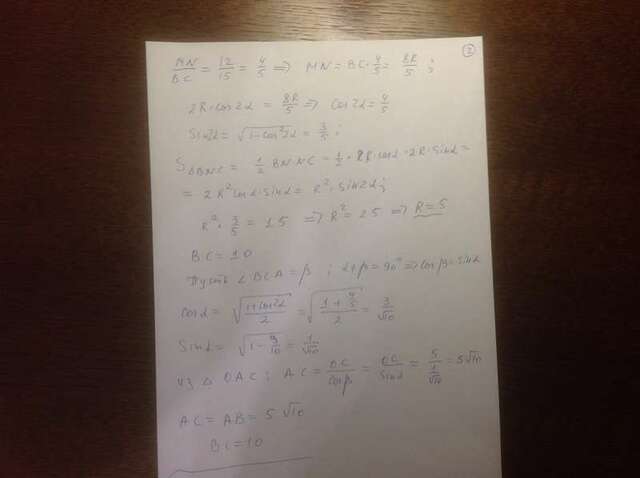 ②
MN/BC = 12/15 = 4/5 => MN = BC · 4/5 = 8R/5 ;
2R · cos2α = 8R/5 => Cos2α = 4/5
Sin2α = √(1-cos²2α) = 3/5 ;
S△BNC = 1/2 BN · NC = 1/2 · 2R · cosα · 2R · Sinα =
= 2R² cosα · Sinα = R² · Sin2α ;
R² · 3/5 = 15 => R² = 25 => R = 5
BC = 10
Пусть ∠BCA = β ; α+β = 90° => Cosβ = Sinα
Cosα = √((1+cos2α)/2) = √((1+4/5)/2) = 3/√10
Sinα = √(1-9/10) = 1/√10
из △OAC ; AC = OC/Cosβ = OC/Sinα = 5/(1/√10) = 5√10
AC = AB = 5√10
BC = 10